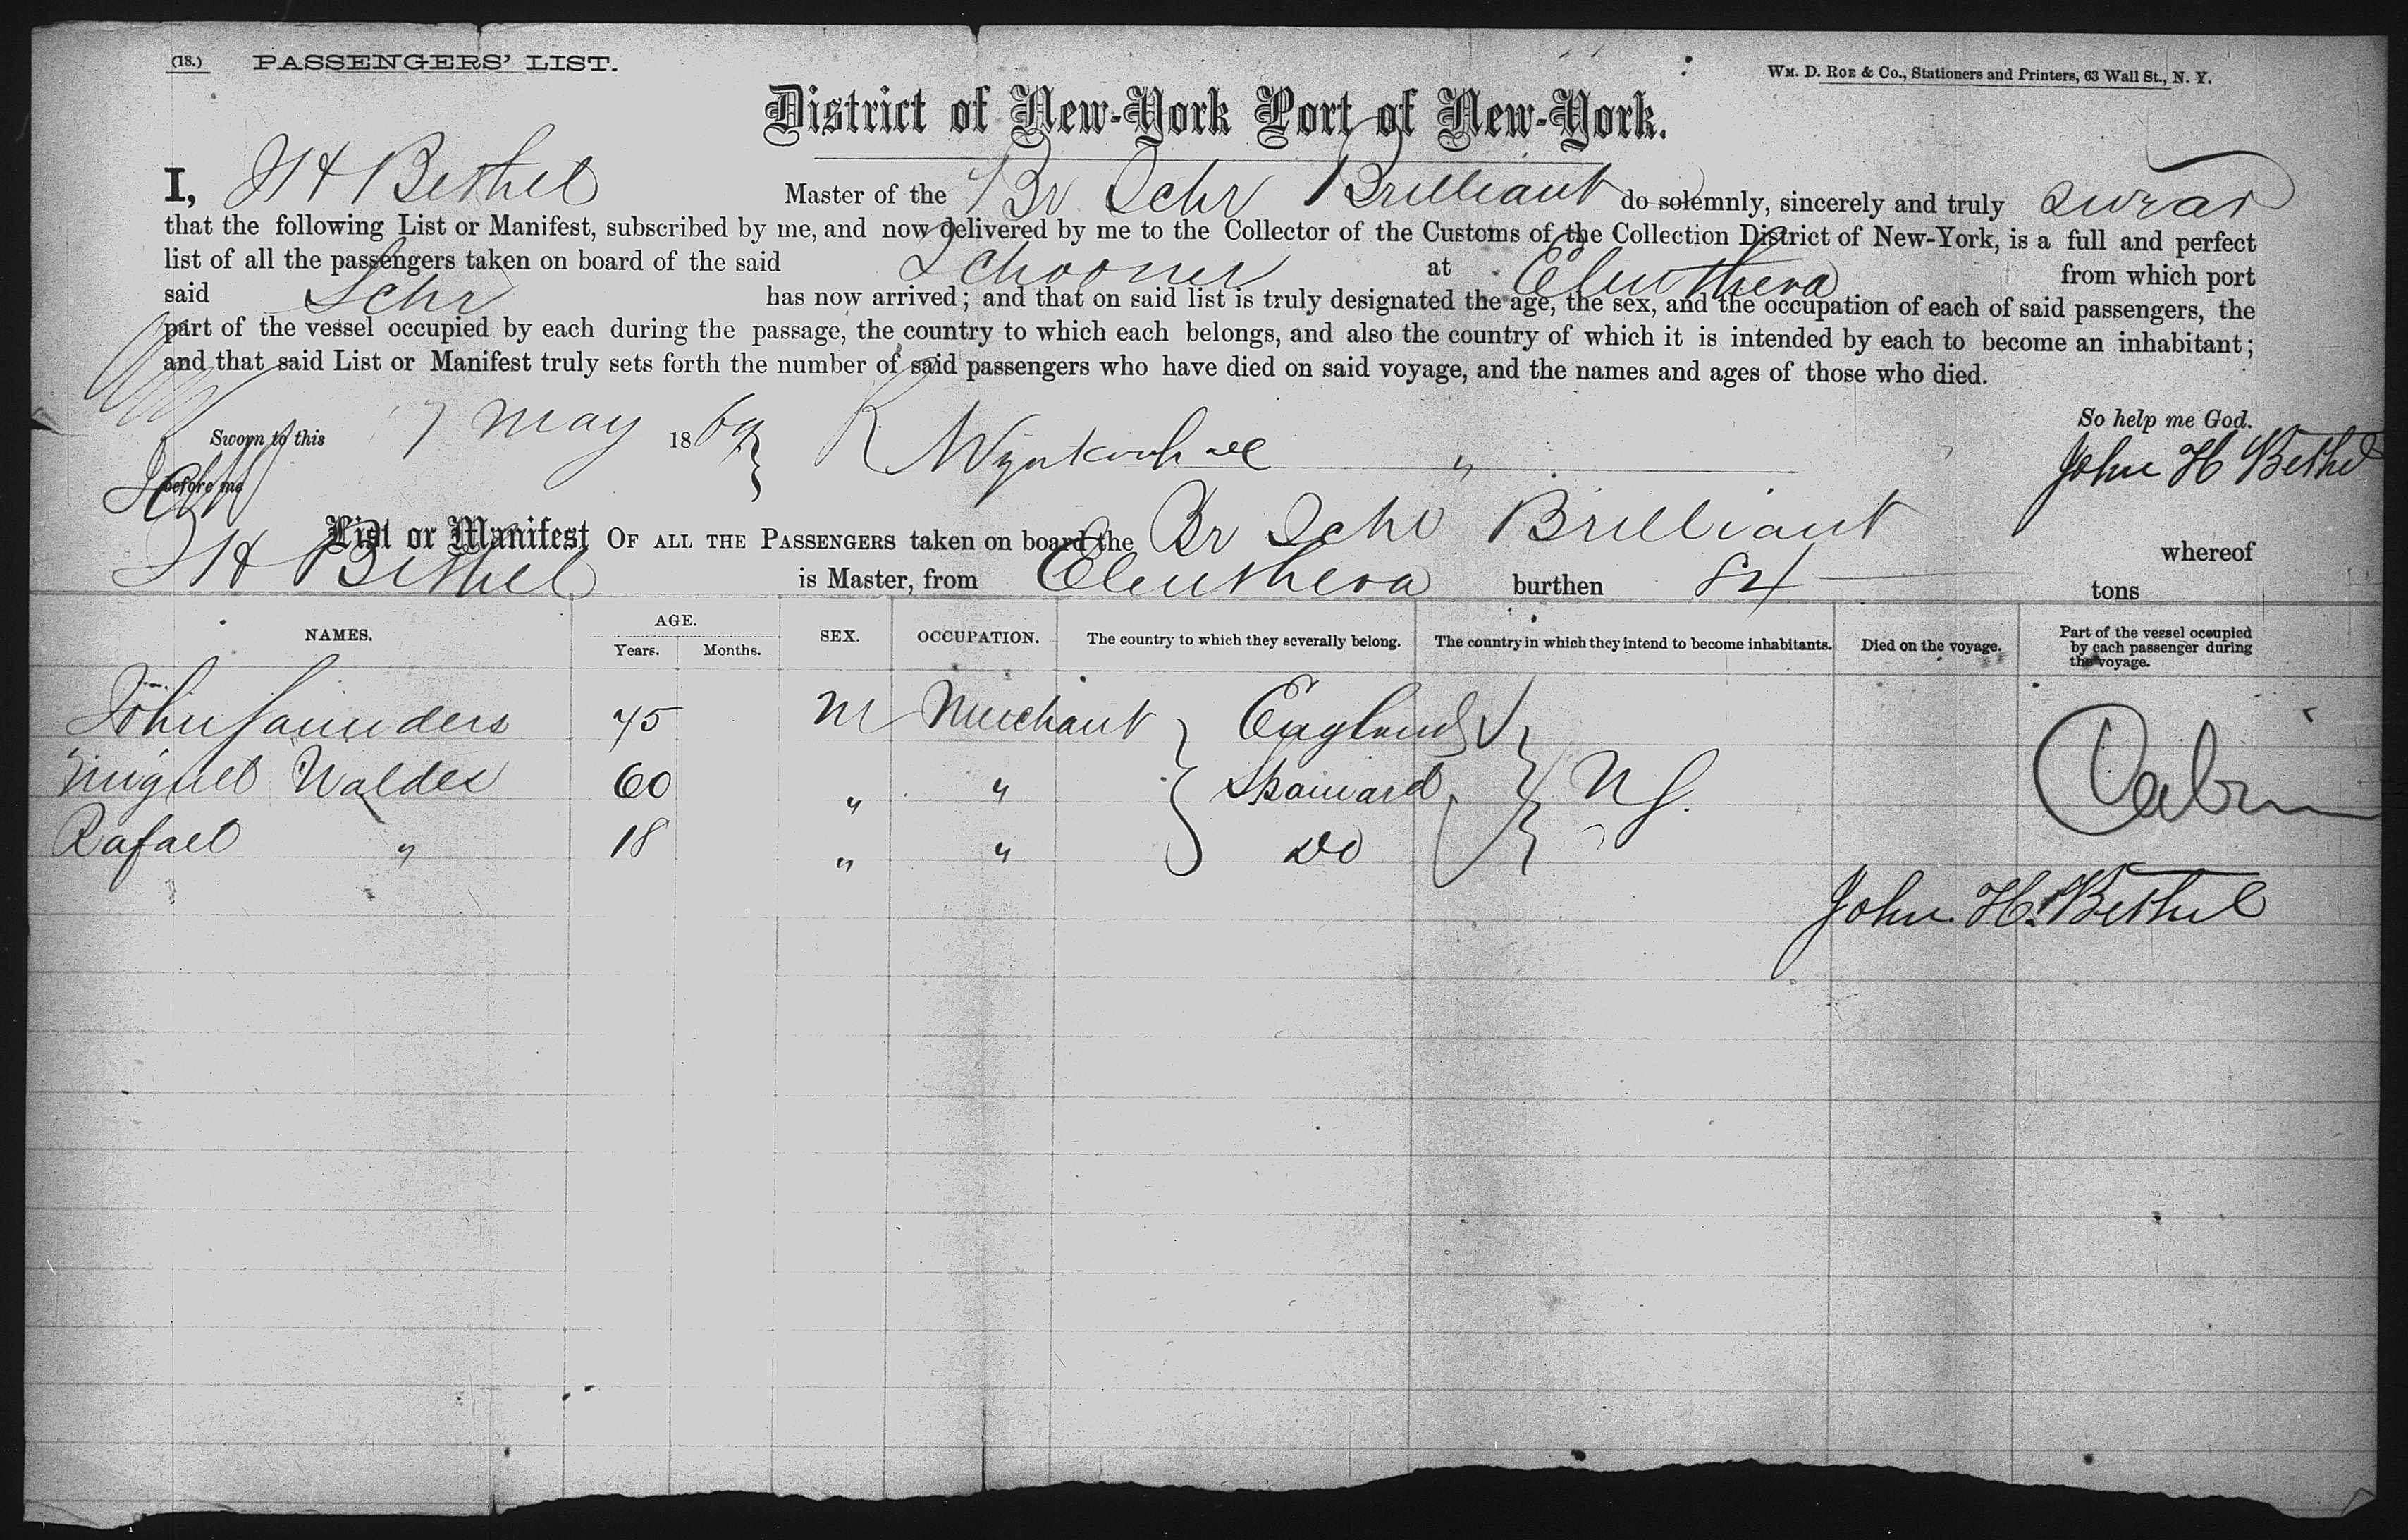 (18.) PASSENGERS' LIST.
WM. D. ROE & Co., Stationers and Printers, 63 Wall St., N. Y.
District of New-York Port of New-York.
I, J H Bethel Master of the Br Schr Brilliant do solemnly, sincerely and truly swear
that the following List or Manifest, subscribed by me, and now delivered by me to the Collector of the Customs of the Collection District of New-York, is a full and perfect
list of all the passengers taken on board of the said Schooner at Eleuthera from which port
said Schr has now arrived; and that on said list is truly designated the age, the sex, and the occupation of each of said passengers, the
part of the vessel occupied by each during the passage, the country to which each belongs, and also the country of which it is intended by each to become an inhabitant;
and that said List or Manifest truly sets forth the number of said passengers who have died on said voyage, and the names and ages of those who died.
So help me God.
Sworn to this 17 May 1869 John H Bethel
before me
List or Manifest OF ALL THE PASSENGERS taken on board the Br Schr Brilliant whereof
J H Bethel is Master, from Eleuthera burthen 84 tons
NAMES. AGE. Years. Months. SEX. OCCUPATION. The country to which they severally belong. The country in which they intend to become inhabitants. Died on the voyage. Part of the vessel occupied by each passenger during the voyage.
John Saunders 45 M Merchant England
Miguel Valdes 60 " " Spaniard Cabin
Rafael " 18 " " Do
John. H. Bethel